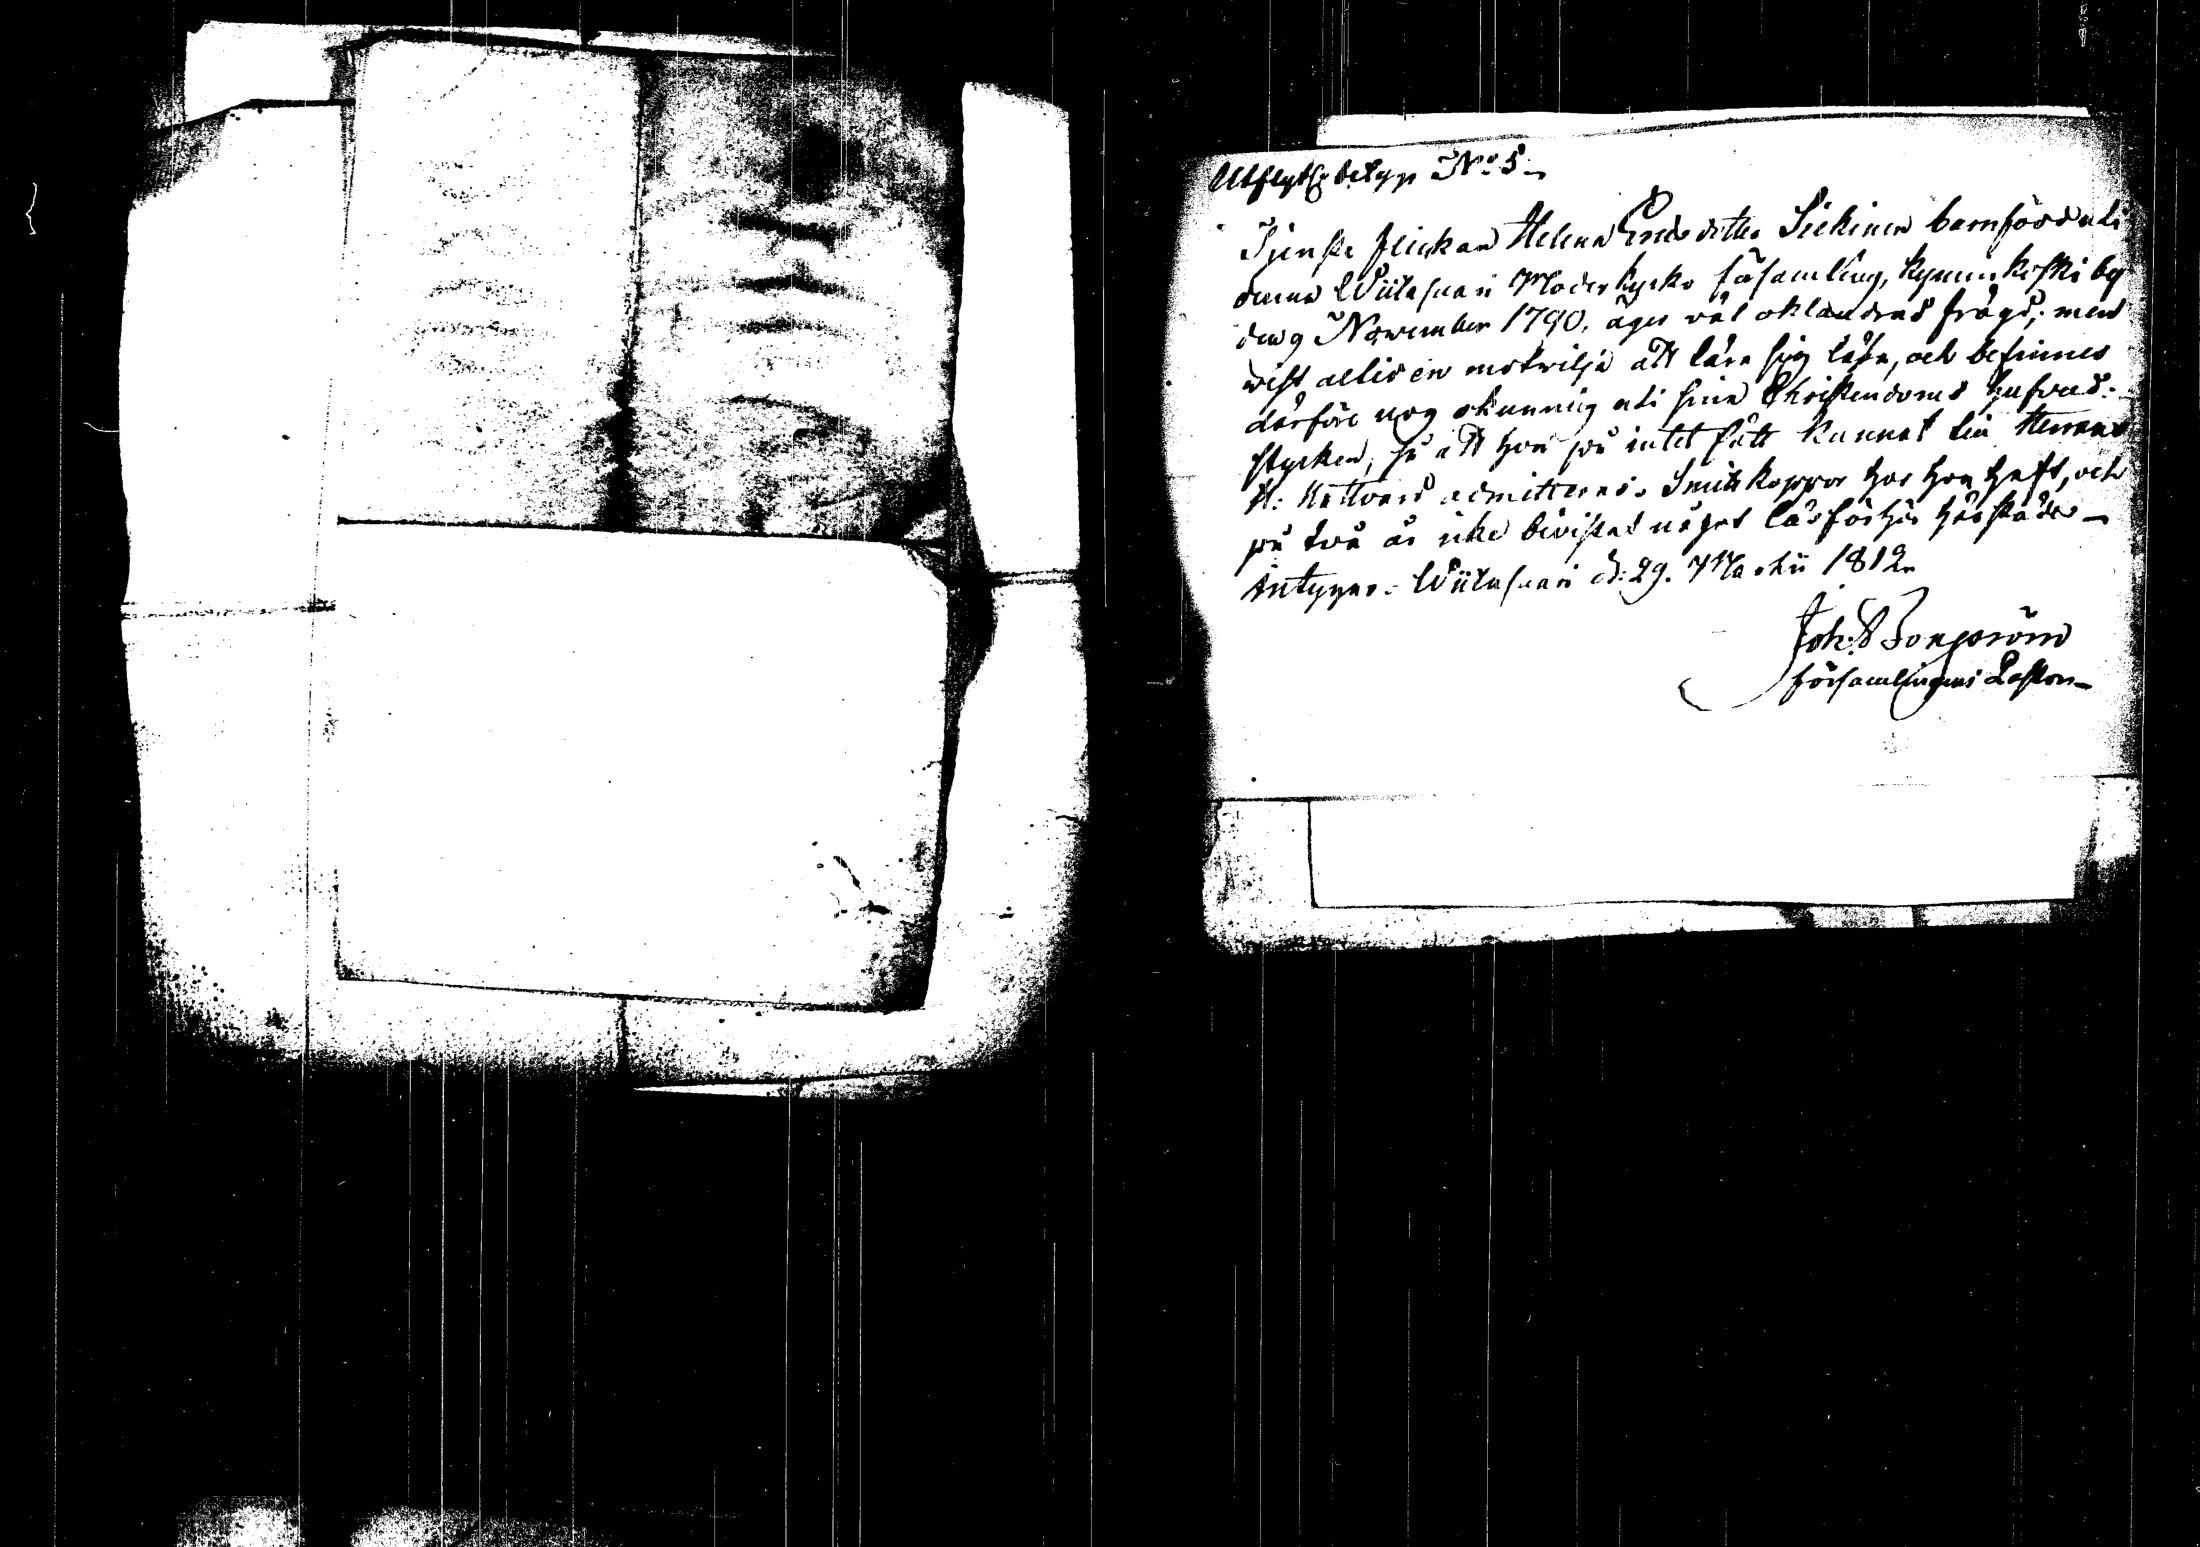 Utflyttgs betyg No 5.
Tjenste flickan Helena Ersdotter Siekinen barnfödd uti
denna Wiitasaari Moderkyrko församling, Kymönkoski by
den 9 November 1790, äger väl oklandrad frägd; men
vist altid en motvilja att lära sig läsa, och befinnes
därföre nog okunnig uti sina Christendoms hufvud-
stycken, så att hon på intet sätt kunnat till Herrans
H: Nattvard admitteras. Smittkoppor har hon haft, och
på två år icke bivistat något läsförhör härstädes
intygar. Wiitasaari d: 29. Martii 1812.
Joh:
församlingens Pastor